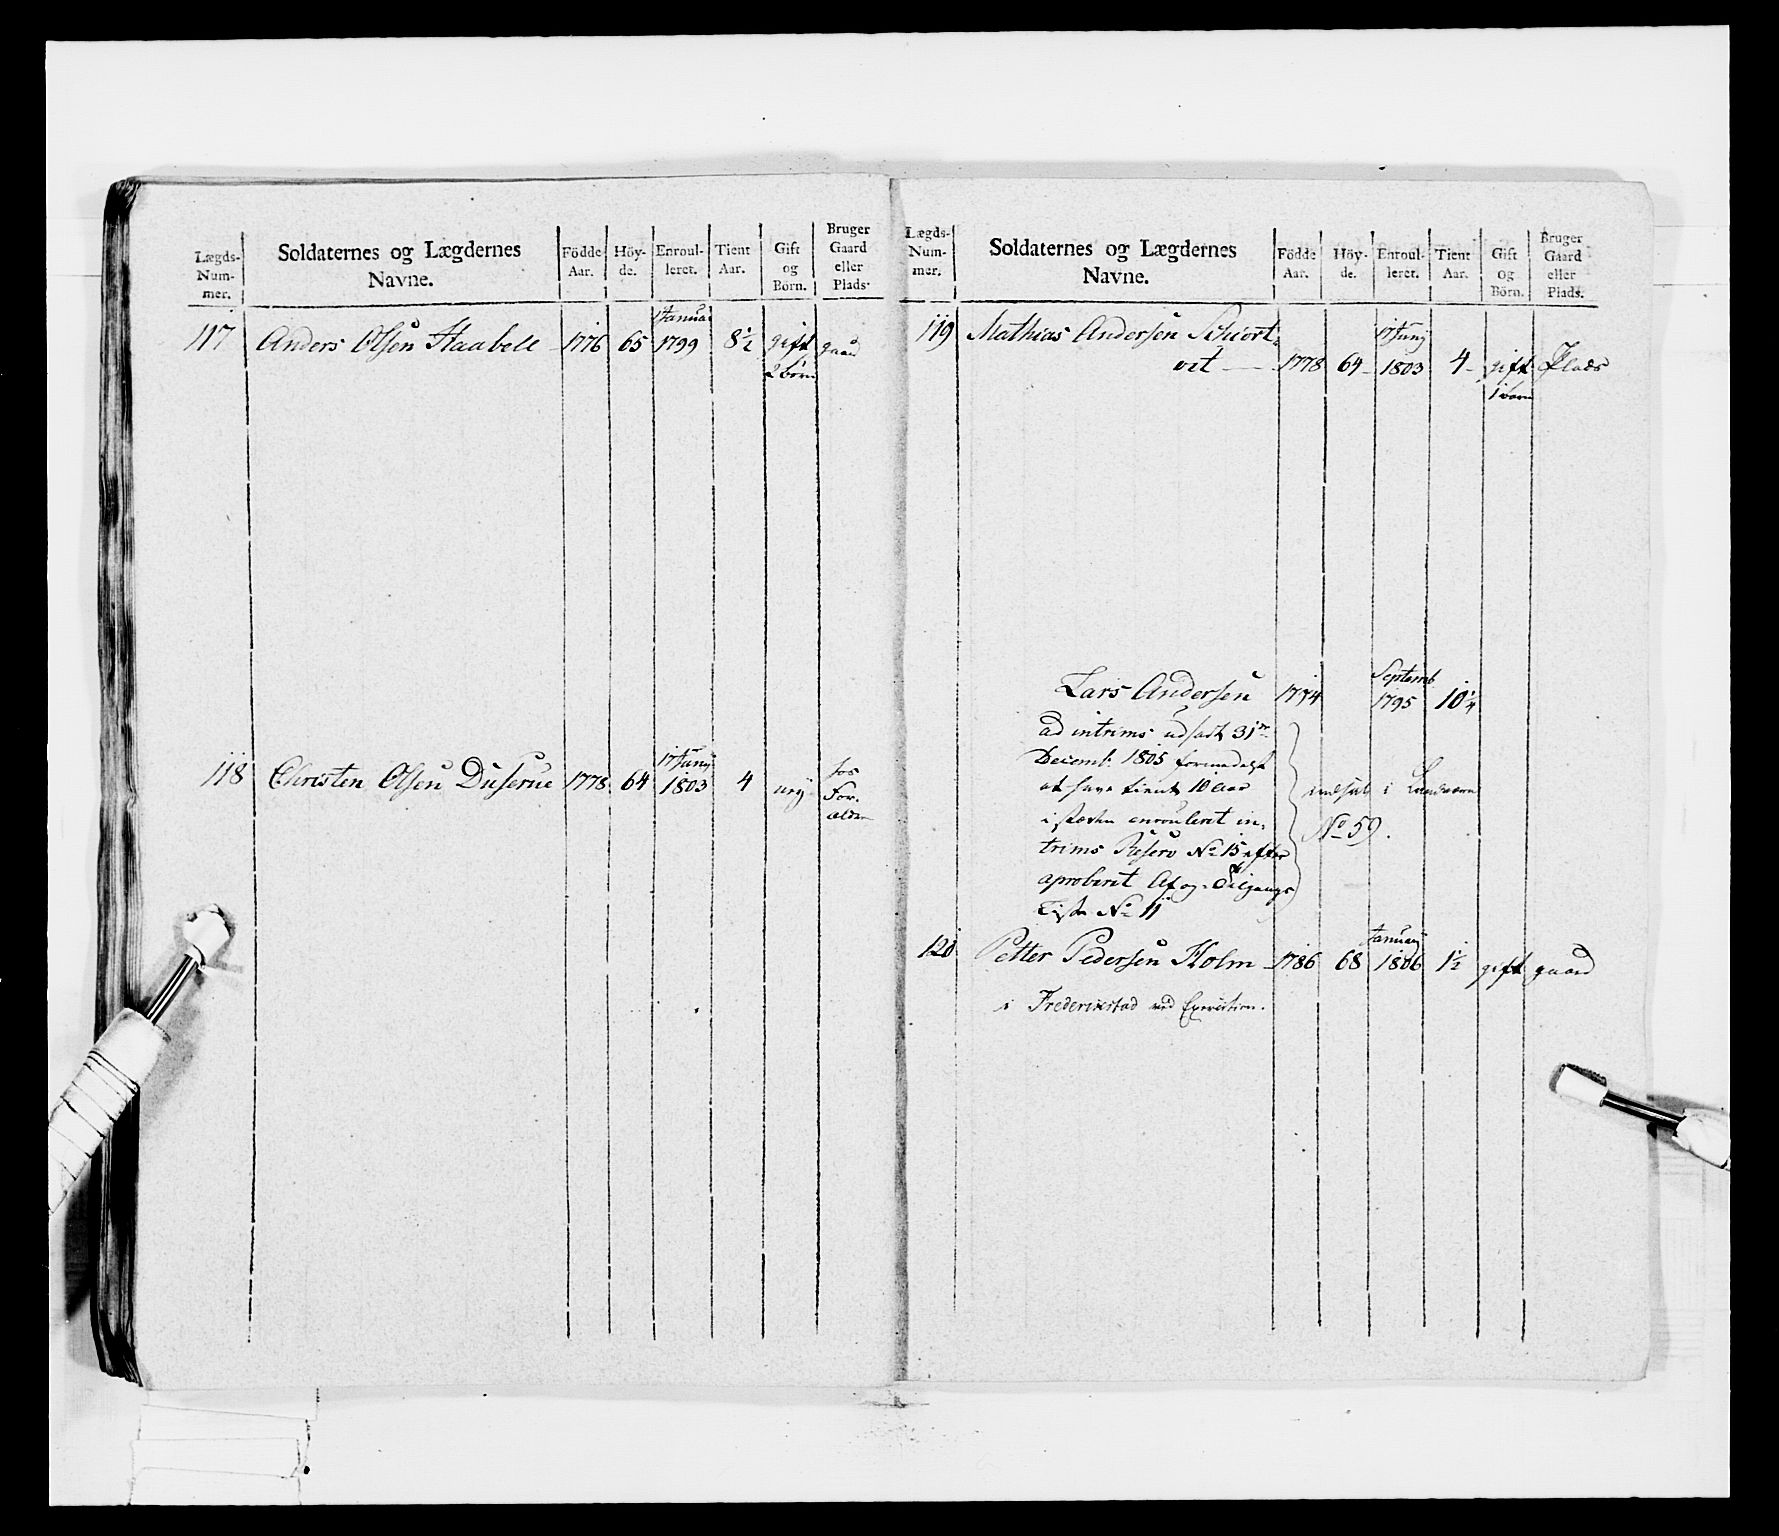 Lægds-
Num-
mer.
Soldaternes og Lægdernes
Navne.
Födde
Aar.
Höy-
de.
Enroul-
leret.
Tient
Aar.
Gift
og
Börn.
Bruger
Gaard
eller
Plads.
117 Anders Olsen Haabell 1776 65 Januar 1799 8½ gift gaard
2 börn
118 Christen Olsen Duserue 1778 64 17 Juny 1803 4 ugj hos
For-
ældre
Lægds-
Num-
mer.
Soldaternes og Lægdernes
Navne.
Födde
Aar.
Höy-
de.
Enroul-
leret.
Tient
Aar.
Gift
og
Börn.
Bruger
Gaard
eller
Plads.
119 Mathias Andersen Schiort- 17 Juny
vet — 1778 64 1803 4 gift Plads
1 barn
Septemb
Lars Andersen 1774 1795 10¼
ad intrims udsadt 31te
Decemb. 1805 formedelst
at have tient 10 Aar
i stæden enrouleret in-
trims Reserv No 15 efter
aproberet Af og Tilgangs
Liste No 11
indsat i Landværn
No 59.
120 Petter Pedersen Holm 1786 68 January 1806 1½ gift gaard
i Frederikstad ved